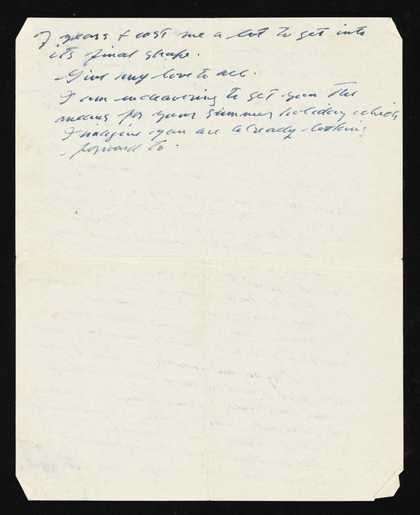 of years & cost me a lot to get into
its final shape.
Give my love to all.
I am endeavoring to get you the
means for your summer holiday which
I imagine you are already looking
forward to.